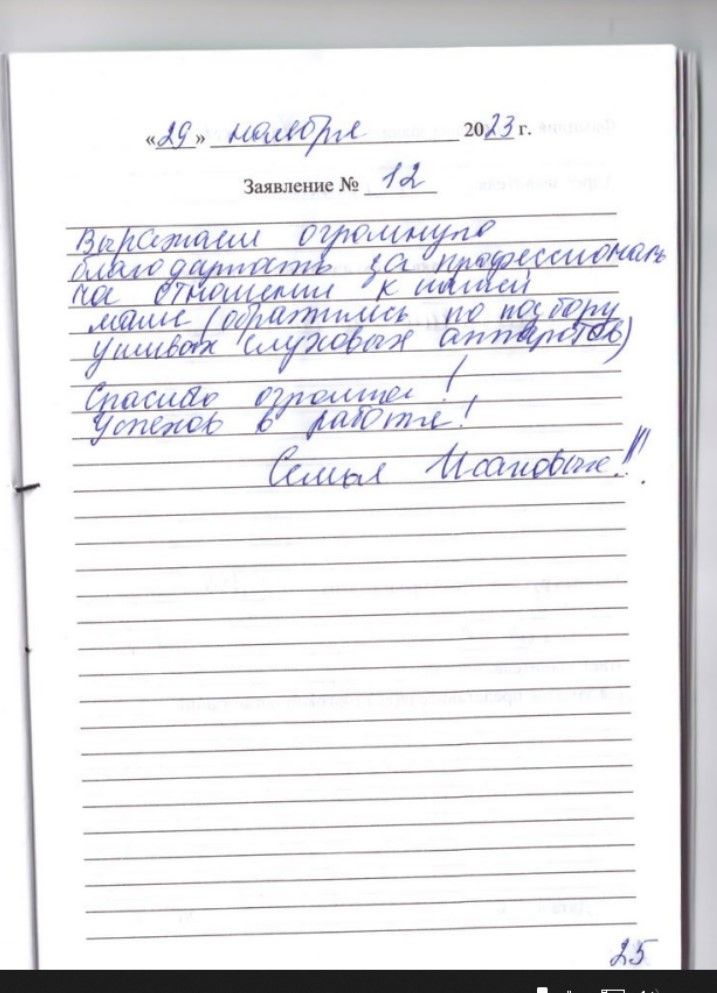 «29» ноября 2023 г.
Заявление № 12
Выражаем огромную
благодарность за профессиональ
ное отношение к нашей
маме (обратились по подбору
ушных слуховых аппаратов)
Спасибо огромное!
Успехов в работе!
Семья Исановых!!!
25